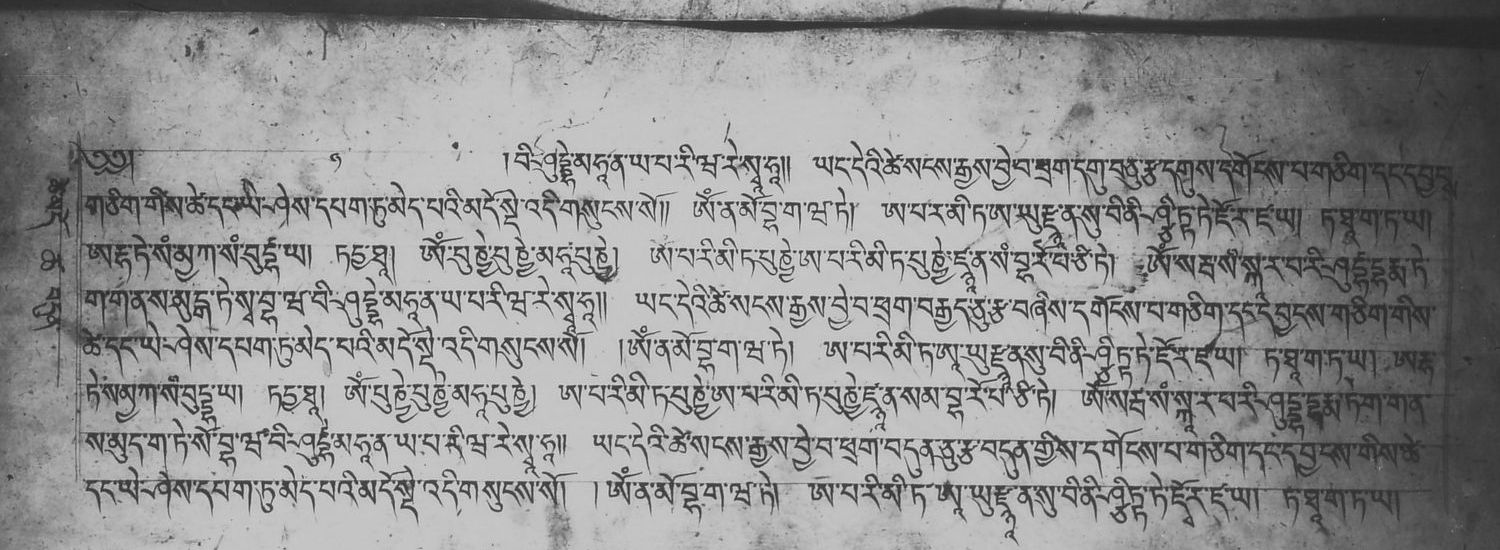 ༄༅། ། བི་ཤུདྡྷེ་མ་ཧཱ་ན་ཡ་པ་རི་ཝ་རེ་སྭཱ་ཧཱ།། ཡང་དེའི་ཚེ་སངས་རྒྱས་བྱེ་བ་ཕྲག་དགུ་བཅུ་རྩ་དགུས་དགོངས་པ་གཅིག་དང་དབྱངས
གཅིག་གིས་ཚེ་དང་ཡེ་ཤེས་དཔག་ཏུ་མེད་པའི་མདོ་སྡེ་འདི་གསུངས་སོ།། ཨོཾ་ན་མོ་བྷ་ག་ཝ་ཏེ། ཨ་པ་ར་མི་ཏ་ཨ་ཡུརྫྙཱ་ན་སུ་བི་ནི་ཤྩི་ཏ་ཏེ་ཛོ་ར་ཛ་ཡ། ཏ་ཐཱ་ག་ཏ་ཡ།
ཨརྷ་ཏེ་སཾ་མྱཀ་སཾ་བུདྡྷ་ཡ། ཏདྱ་ཐཱ། ཨོཾ་པུཎྱེ་པུཎྱེ་མ་ཧཱ་པུཎྱེ། ཨ་པ་རི་མི་ཏ་པུཎྱེ་ཨ་པ་རི་མི་ཏ་པུཎྱེ་ཛྙཱ་ན་སཾ་བྷ་རོ་པ་ཙི་ཏེ། ཨོཾ་སརྦ་སཾ་སྐཱ་ར་པ་རི་ཤུདྡྷ་དྷརྨ་ཏེ
ག་ག་ན་ས་མུངྒ་ཏེ་སྭ་བྷ་ཝ་བི་ཤུདྡྷེ་མ་ཧཱ་ན་ཡ་པ་རི་ཝ་རེ་སྭཱ་ཧཱ།། ཡང་དེའི་ཚེ་སངས་རྒྱས་བྱེ་བ་ཕྲག་བརྒྱད་ཅུ་རྩ་བཞིས་དགོངས་པ་གཅིག་དང་དབྱངས་གཅིག་གིས་
ཚེ་དང་ཡེ་ཤེས་དཔག་ཏུ་མེད་པའི་མདོ་སྡེ་འདི་གསུངས་སོ། །ཨོཾ་ན་མོ་བྷ་ག་ཝ་ཏེ། ཨ་པ་རི་མི་ཏ་ཨཱ་ཡུརྫྙཱ་ན་སུ་བི་ནི་ཤྩི་ཏ་ཏེ་ཛོ་ར་ཛ་ཡ། ཏ་ཐཱ་ག་ཏ་ཡ། ཨརྷ
ཏེ་སཾ་མྱཀ་སཾ་བུདྡྷ་ཡ། ཏདྱ་ཐཱ། ཨོཾ་པུཎྱེ་པུཎྱེ་མ་ཧཱ་པུཎྱེ། ཨ་པ་རི་མི་ཏ་པུཎྱེ་ཨ་པ་རི་མི་ཏ་པུཎྱེ་ཛྙཱ་ན་སམ་བྷ་རོ་པ་ཙི་ཏེ། ཨོཾ་སརྦ་སཾ་སྐཱ་ར་པ་རི་ཤུདྡྷ་དྷརྨ་ཏེ་ག་ག་ན་
ས་མུད་ག་ཏེ་སོ་བྷ་ཝ་བི་ཤུདྡྷེ་མ་ཧཱ་ན་ཡ་པ་རི་ཝ་རེ་སྭཱ་ཧཱ།། ཡང་དེའི་ཚེ་སངས་རྒྱས་བྱེ་བ་ཕྲག་བདུན་ཅུ་རྩ་བདུན་གྱིས་དགོངས་པ་གཅིག་དང་དབྱངས་གིས་ཚེ་
དང་ཡེ་ཤེས་དཔག་ཏུ་མེད་པའི་མདོ་སྡེ་འདི་གསུངས་སོ། །ཨོཾ་ན་མོ་བྷ་ག་ཝ་ཏེ། ཨ་པ་རི་མི་ཏ་ཨཱ་ཡུརྫྙཱ་ན་སུ་བི་ནི་ཤྩི་ཏ་ཏེ་ཛོ་ར་ཛ་ཡ། ཏ་ཐཱ་ག་ཏ་ཡ།